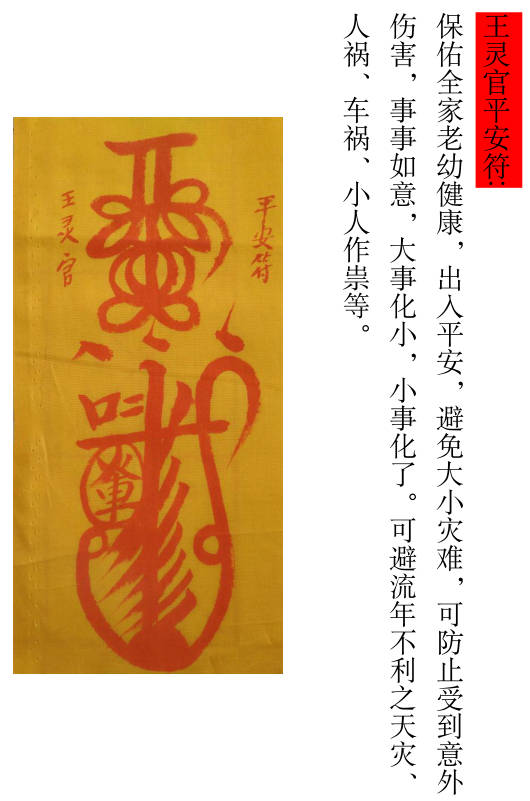 王灵官平安符:
保佑全家老幼健康，出入平安，避免大小灾难，可防止受到意外
伤害，事事如意，大事化小，小事化了。可避流年不利之天灾、
人祸、车祸、小人作祟等。
平安符
王灵官